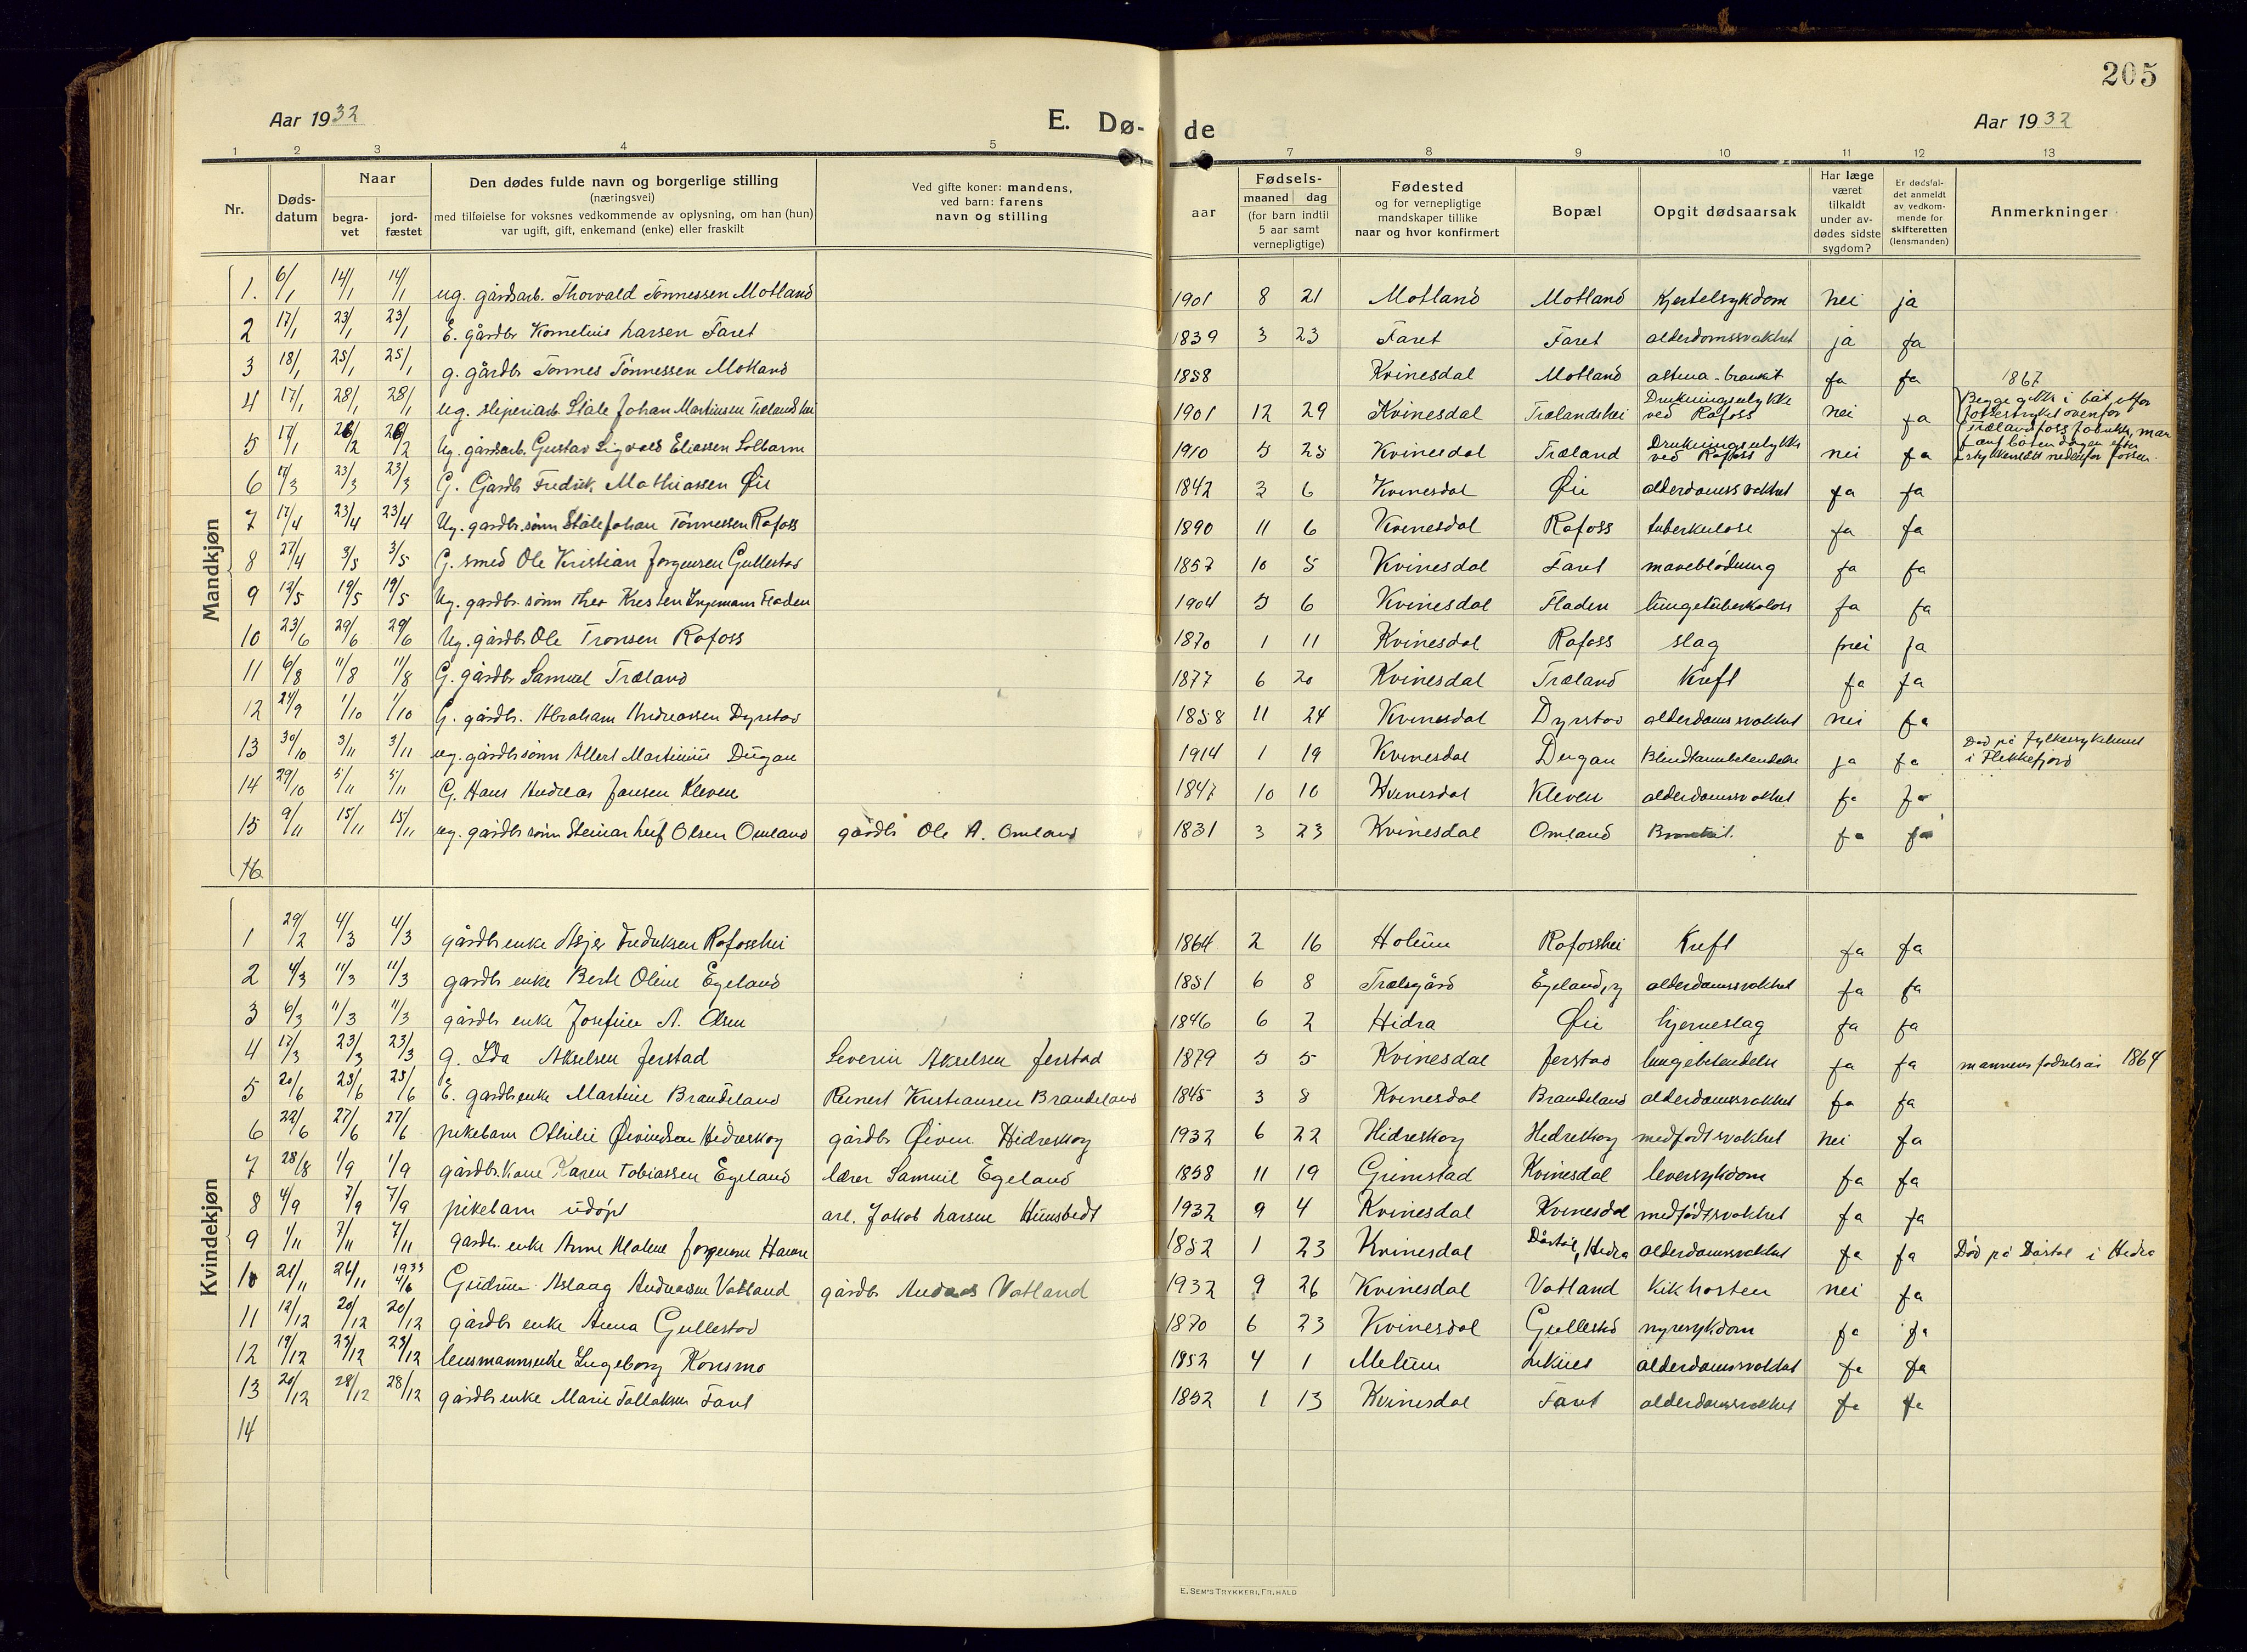 205
Aar 1932
E. Dø-
de
Aar 1932
1 2 3 4 5 6 7 8 9 10 11 12 13
Nr.
Døds-
datum
Naar
begra-
vet
jord-
fæstet
Den dødes fulde navn og borgerlige stilling
(næringsvei)
med tilføielse for voksnes vedkommende av oplysning, om han (hun)
var ugift, gift, enkemand (enke) eller fraskilt
Ved gifte koner: mandens,
ved barn: farens
navn og stilling
Fødsels-
aar
maaned dag
(for barn indtil
5 aar samt
vernepligtige)
Fødested
og for vernepligtige
mandskaper tillike
naar og hvor konfirmert
Bopæl
Opgit dødsaarsak
Har læge
været
tilkaldt
under av-
dødes sidste
sygdom?
Er dødsfal-
det anmeldt
av vedkom-
mende for
skifteretten
(lensmanden)
Anmerkninger
Mandkjøn
1. 6/1 14/1 14/1 ug. gårdsarb. Thorvald Tønnessen Motland 1901 8 21 Motland Motland Kjertelsykdom nei ja
2 17/1 23/1 23/1 E. gårdbr Kornelius Larsen Faret 1839 3 23 Faret Faret alderdomssvakhet ja ja
3 18/1 25/1 25/1 g. gårdbr Tønnes Tønnessen Motland 1858 Kvinesdal Motland ja ja 1867
4 17/1 28/1 28/1 ug. sliperiarb. Ståle Johan Martinsen Trælandshei 1901 12 29 Kvinesdal Trælandshei Drukningsulykke ved Rafoss nei ja Begge gikk i båt
5 17/1 Ug. gårdsarb. Gustav Sigvald Eliassen Solbarm 1910 5 25 Kvinesdal Træland Drukningsulykke ved Rafoss nei ja
6 17/3 23/3 23/3 G. Gårdbr Fredrik Mathiassen Øie 1842 3 6 Kvinesdal Øie alderdomssvakhet ja ja
7 17/4 23/4 23/4 Ug. gardbr. sønn Ståle Johan Tønnessen Rafoss 1890 11 6 Kvinesdal Rafoss tuberkulose ja ja
8 27/4 3/5 3/5 G. smed Ole Kristian Jørgensen Gullestad 1857 10 5 Kvinesdal Faret maveblødning ja ja
9 12/5 19/5 19/5 Ug. gardbr. sønn Ingemann Fladen 1904 5 6 Kvinesdal Fladen ja ja
10 23/6 29/6 29/6 Ug. gårdbr Ole Tronsen Rafoss 1870 1 11 Kvinesdal Rafoss slag nei ja
11 6/8 11/8 11/8 G. gårdbr Samuel Træland 1877 6 20 Kvinesdal Træland Kreft ja ja
12 24/9 1/10 1/10 G. gårdbr. Abraham Andreassen Dyrstad 1858 11 24 Kvinesdal Dyrstad alderdomssvakhet nei ja
13 30/10 3/11 3/11 ug. gårdbr sønn Albert Martinius Dugan 1914 1 19 Kvinesdal Dugan Blindtarmbetendelse ja ja Død på Fylkessykehuset i Flekkefjord
14 29/10 5/11 5/11 G. Hans Andreas Jansen Kleven 1847 10 10 Kvinesdal Kleven alderdomssvakhet ja ja
15 9/11 15/11 15/11 ug. gårdbr sønn Steinar Leif Olsen Omland gårdbr Ole A. Omland 1831 3 23 Kvinesdal Omland ja ja
16
Kvindekjøn
1 29/2 4/3 4/3 gårdbr enke Asjer Fredriksen Rafosshei 1864 2 16 Holum Rafosshei Kreft ja ja
2 4/3 11/3 11/3 gardbr enke Berte Oline Egeland 1851 6 8 Trælsgård Egeland alderdomssvakhet ja ja
3 6/3 11/3 11/3 gårdbr enke Josefine A. Olsen 1846 6 2 Hidra Øie hjerneslag ja ja
4 17/3 23/3 23/3 g. Ida Akselsen Jerstad Severin Akselsen Jerstad 1879 5 5 Kvinesdal Jerstad lungebetendelse ja ja mannens fødselsår 1864
5 20/6 25/6 25/6 E. gardbr enke Martine Brandeland Reinert Kristiansen Brandeland 1845 3 8 Kvinesdal Brandeland alderdomssvakhet ja ja
6 22/6 27/6 27/6 pikebarn Othilie Øivindsen Hidreskog gårdbr Øiven Hidreskog 1932 6 22 Hidreskog Hidreskog medfødt svakhet nei ja
7 28/8 1/9 1/9 gårdbr. kone Karen Tobiassen Egeland lærer Samuel Egeland 1858 11 19 Grimstad Kvinesdal leversykdom ja ja
8 4/9 7/9 7/9 pikebarn udøpt arb. Jakob Larsen Hunsbedt 1932 9 4 Kvinesdal Kvinesdal medfødt svakhet ja ja
9 1/11 7/11 7/11 gardbr. enke Anne Malene Jørgensen 1852 1 23 Kvinesdal Dåstøl, Hidra alderdomssvakhet ja ja Død på Dåstøl i Hidra
10 21/11 26/11 1933 4/6 Gudrun Aslaug Andreassen Vatland gårdbr Andreas Vatland 1932 9 26 Kvinesdal Vatland Kikhosten nei ja
11 12/12 20/12 20/12 gårdbr enke Anna Gullestad 1870 6 23 Kvinesdal Gullestad nyresykdom ja ja
12 19/12 23/12 23/12 lensmannsenke Ingeborg Konsmo 1852 4 1 Melum Liknes alderdomssvakhet ja ja
13 20/12 28/12 28/12 gårdbr enke Marie Tollaksen Faret 1852 1 13 Kvinesdal Faret alderdomssvakhet ja ja
14
E. SEM'S TRYKKERI, FR. HALD